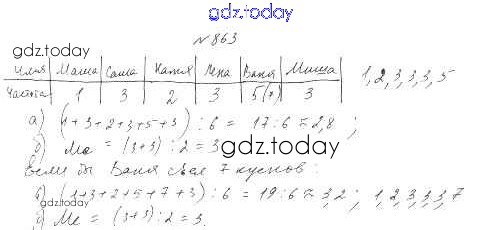 gdz.today
№863
gdz.today
Имя Маша Саша Катя Лена Ваня Миша 1, 2, 3, 3, 3, 5
1 3 2 3 5(7) 3
а) (1+3+2+3+5+3) : 6 = 17:6 ≈ 2,8 ;
б) Me = (3+3):2 = 3 gdz.today
Если бы Ваня съел 7 кусков:
(1+3+2+5+7+3) : 6 = 19:6 ≈ 3,2 ; 1, 2, 3, 3, 3, 7
gdz.today
Me = (3+3):2 = 3.